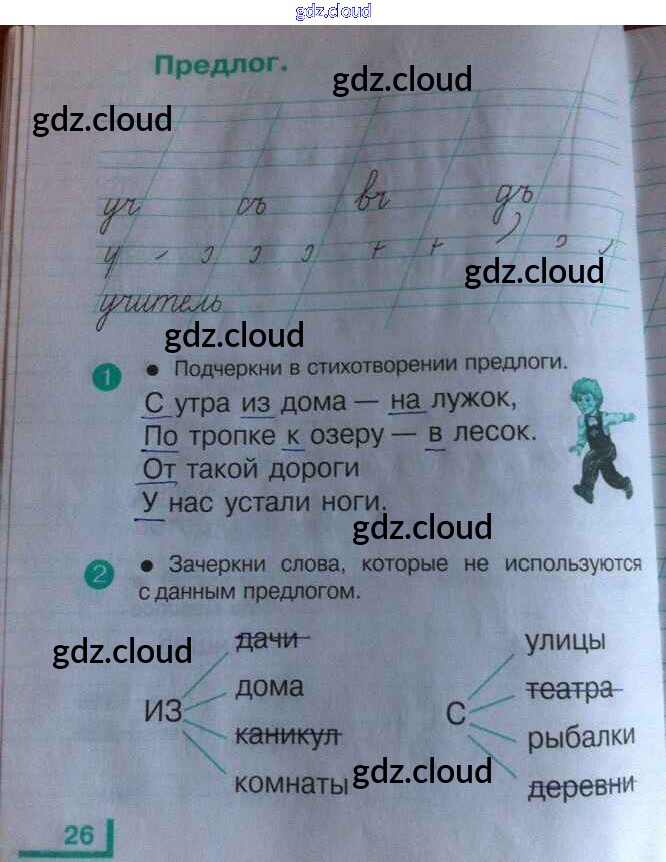 gdz.cloud
Предлог.
gdz.cloud
gdz.cloud
уч съ вч дъ
у
gdz.cloud
учитель
gdz.cloud
1 • Подчеркни в стихотворении предлоги.
С утра из дома — на лужок,
По тропке к озеру — в лесок.
От такой дороги
У нас устали ноги.
gdz.cloud
2 • Зачеркни слова, которые не используются
с данным предлогом.
gdz.cloud
ИЗ
дачи
дома
каникул
комнаты
С
улицы
театра
рыбалки
деревни
gdz.cloud
26